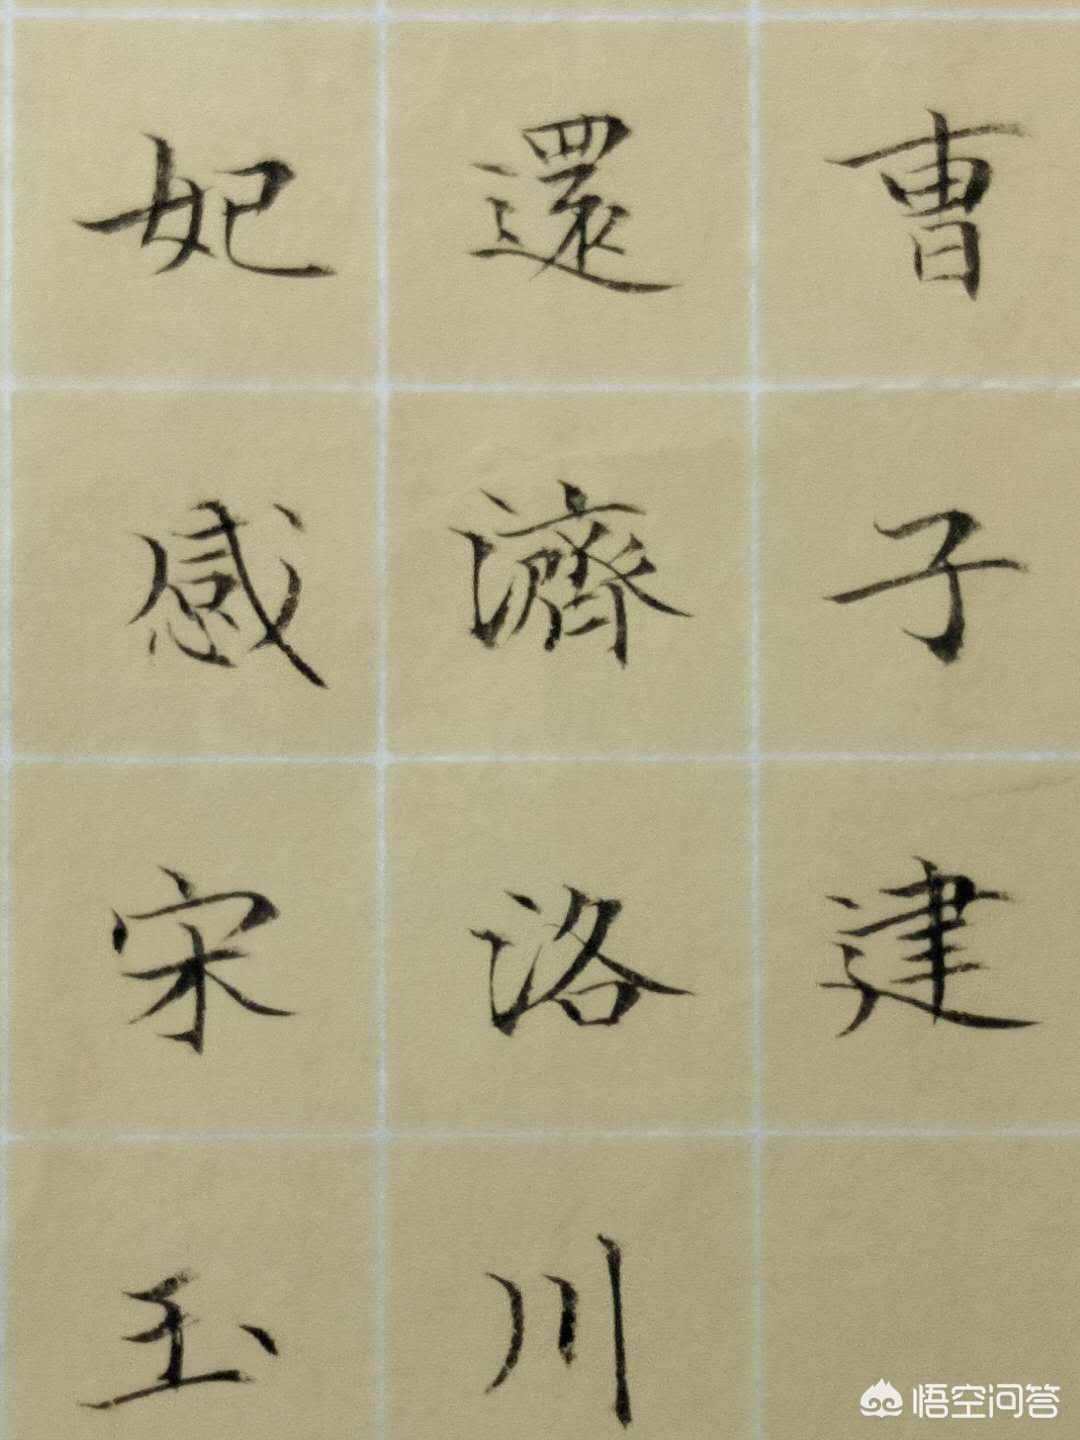 曹子建
還濟洛川
妃感宋玉
悟空问答